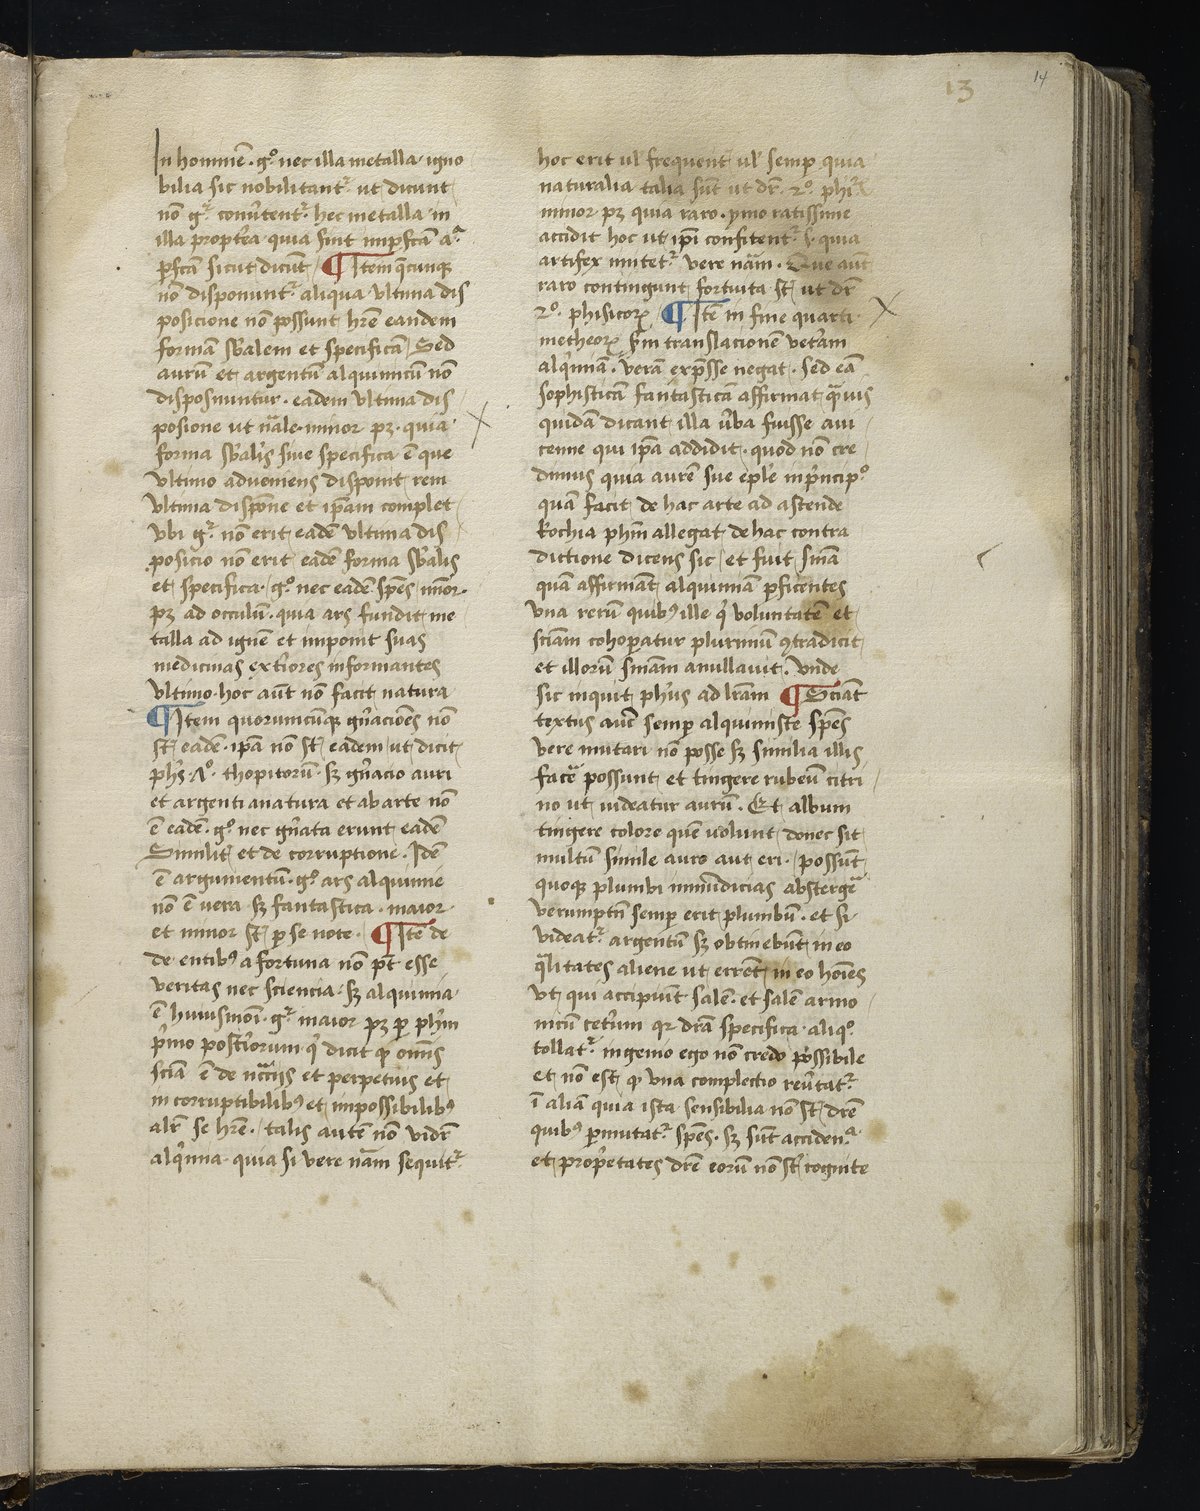 13
14
In hominē · gͦ nec illa metalla igno
bilia sic nobilitantʳ ut dicunt
nō gͬ conv̄tentʳ hec metalla in
illa propt̄ea quia sint imp̄fcā aͬ
p̄fcā sicut dicūt ¶ Item q̄cunqꝫ
nō disponuntʳ aliqua ultima dis
posicione nō possunt hr̄e eandem
formā sb̄alem et specificā / Sed
aurū et argentū alquimicū nō
disponuntur · eadem ultima dis
posione ut nāle · minor pꝫ · quia
forma sb̄alis sive specifica ē que
ultimo adveniens disponit rem
ultima dispōne et ip̄am complet
ubi gͬ nō erit eadē ultima dis
posicio nō erit eadē forma sb̄alis
et specifica · gͦ nec eadē spēs · mīor ·
pꝫ ad occulū · quia ars fundit me
talla ad ignē et imponit suas
medicinas ext̄iores informantes
ultimo · hoc aūt nō facit natura
¶ Item quorumcūqꝫ gn̄aciōes nō
st̄ eadē · ip̄a nō st̄ eadem ut dicit
phūs · thopitorū · sꝫ gn̄acio auri
et argenti anatura et abarte nō
ē eadē · gͦ nec gn̄ata erunt eadē
Similit̄ et de corruptione · Idē
ē argumentū · gͦ ars alquimie
nō ē vera sꝫ fantastica · maior
et minor st̄ ꝑ se note · ¶ Itē de
de entibꝰ a fortuna nō pt̄ esse
veritas nec sciencia · sꝫ alquimia
ē huiusmōi · gͬ maior pꝫ ꝑ phm̄
p̄mo post̄iorum q̇ dicit ꝙ omīs
sciā ē de nc̄āiis et perpetuis et
in corruptibilibꝰ et impossibilibꝰ
alr̄ se hr̄e · talis autē nō vidr̄
alq̇mia quia si vere nām sequitʳ
hoc erit ul̄ frequent̄ ul̄ semꝑ quia
naturalia talia sūt ut dr̄ 2ͦ phīꝝ
minor pꝫ quia raro · ymo ratissime
accidit hoc ut ip̄i confitentʳ quia
artifex imitetʳ vere nām · Que aūt
raro contingunt fortuita st̄ ut dr̄
2ͦ · phisicorꝝ ¶ Itē in fine quarti
metheorꝝ s̄m translacionē vet̄am
alq̇miā · verā exp̄sse negat · sed eā
sophisticā fantasticā affirmat q̄vis
quidā dicant illa v̄ba fuisse avi
cenne qui ip̄a addidit · quod nō cre
dimus quia aurē sue ep̄le in p̄ncipͦ
quā facit de hac arte ad astende
kochia phm̄ allegat de hac contra
dictione dicens sic / et fuit sn̄iā
quā affirmāt alquimiā ꝓficentes
una rerū quibꝰ ille q̇ voluntatē et
sciam cohoꝑatur plurimū ꝯtradicit
et illorū sn̄iam anullavit · Unde
sic inquit phūs ad lr̄am ¶ Sciāt
textus auc̄ semꝑ alquimiste spēs
vere mutari nō posse sꝫ similia illis
facē possunt et tingere rubeū citri
no ut videatur aurū · Et album
tingere colore quē volunt donec sit
multū simile auro aut eri · possūt
quoqꝫ plumbi inmūdicias abstergē
verumptn̄ semꝑ erit plumbū · et si
videatʳ argentū sꝫ obtinebūt in eo
q̄litates aliene ut errēt in eo hoīes
ut qui accipiūt salē · et salē armo
nicū cet̄um qꝛ dr̄ā specifica aliqͦ
tollatʳ ingenio ego nō credo possibile
et nō est ꝙ una complectio rev̄tatʳ
ī aliā quia ista sensibilia nō st̄ dr̄e
quibꝰ ꝑmutatʳ spēs · sꝫ sūt accidenͣ
et prop̄etates dr̄e eorū nō st̄ cognite